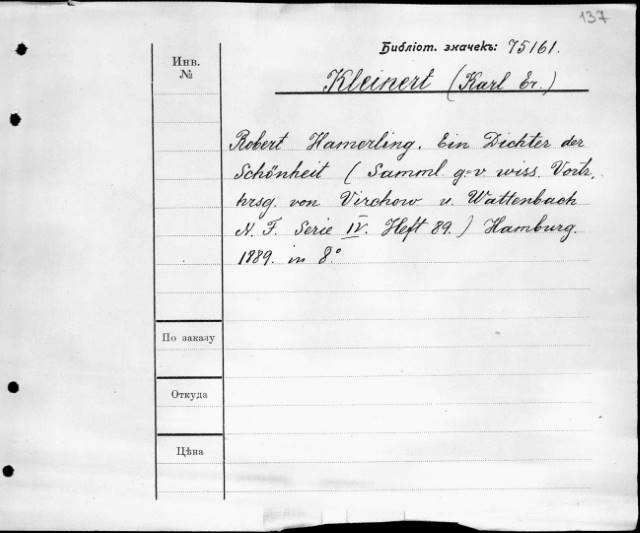 137
Библіот. значекъ: 75161.
Инв.
№
Kleinert (Karl Er.)
Robert Hamerling. Ein Dichter der
Schönheit (Samml g=v. wiss. Vortr.
hrsg. von Virchow u. Wattenbach
N. F. Serie IV. Heft 89.) Hamburg.
1889. in 8°
По заказу
Откуда
Цѣна